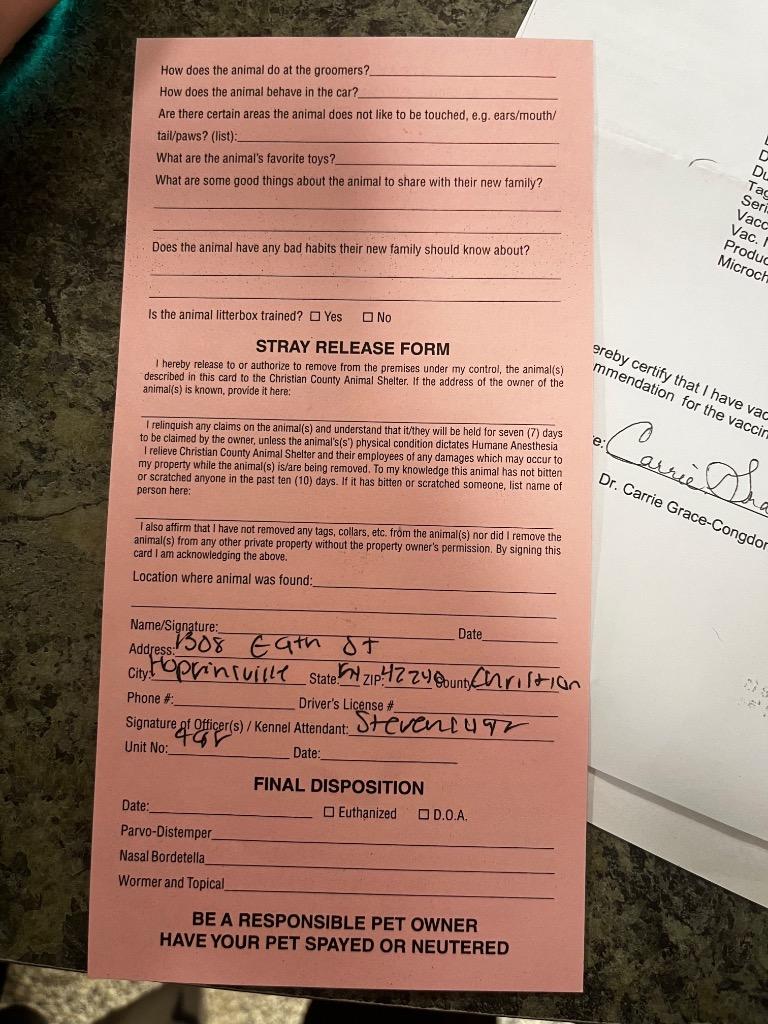 How does the animal do at the groomers?
How does the animal behave in the car?
Are there certain areas the animal does not like to be touched, e.g. ears/mouth/
tail/paws? (list):
What are the animal's favorite toys?
What are some good things about the animal to share with their new family?
Does the animal have any bad habits their new family should know about?
Is the animal litterbox trained? ☐ Yes ☐ No
STRAY RELEASE FORM
I hereby release to or authorize to remove from the premises under my control, the animal(s)
described in this card to the Christian County Animal Shelter. If the address of the owner of the
animal(s) is known, provide it here:
I relinquish any claims on the animal(s) and understand that it/they will be held for seven (7) days
to be claimed by the owner, unless the animal's(s') physical condition dictates Humane Anesthesia
I relieve Christian County Animal Shelter and their employees of any damages which may occur to
my property while the animal(s) is/are being removed. To my knowledge this animal has not bitten
or scratched anyone in the past ten (10) days. If it has bitten or scratched someone, list name of
person here:
I also affirm that I have not removed any tags, collars, etc. from the animal(s) nor did I remove the
animal(s) from any other private property without the property owner's permission. By signing this
card I am acknowledging the above.
Location where animal was found:
Name/Signature: Date
Address: 1308 E 9th St
City: State: ZIP: 42240 County Christian
Phone #: Driver's License #
Signature of Officer(s) / Kennel Attendant: Steven
Unit No: Date:
FINAL DISPOSITION
Date: ☐ Euthanized ☐ D.O.A.
Parvo-Distemper
Nasal Bordetella
Wormer and Topical
BE A RESPONSIBLE PET OWNER
HAVE YOUR PET SPAYED OR NEUTERED
Du
Tag
Seri
Vacc
Vac.
Produc
Microch
ereby certify that I have vac
mmendation for the vaccin
e: Carrie Gra
Dr. Carrie Grace-Congdon